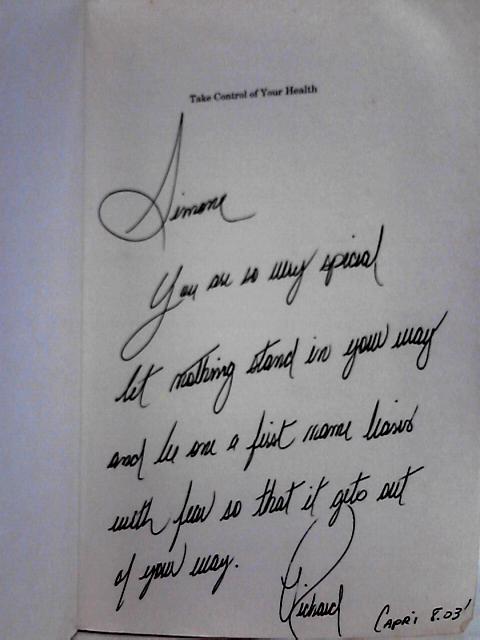 Take Control of Your Health
Simone
You are so very special
let nothing stand in your way
and be one a first name basis
with fear so that it gets out
of your way.
Richard
Capri 8.03'